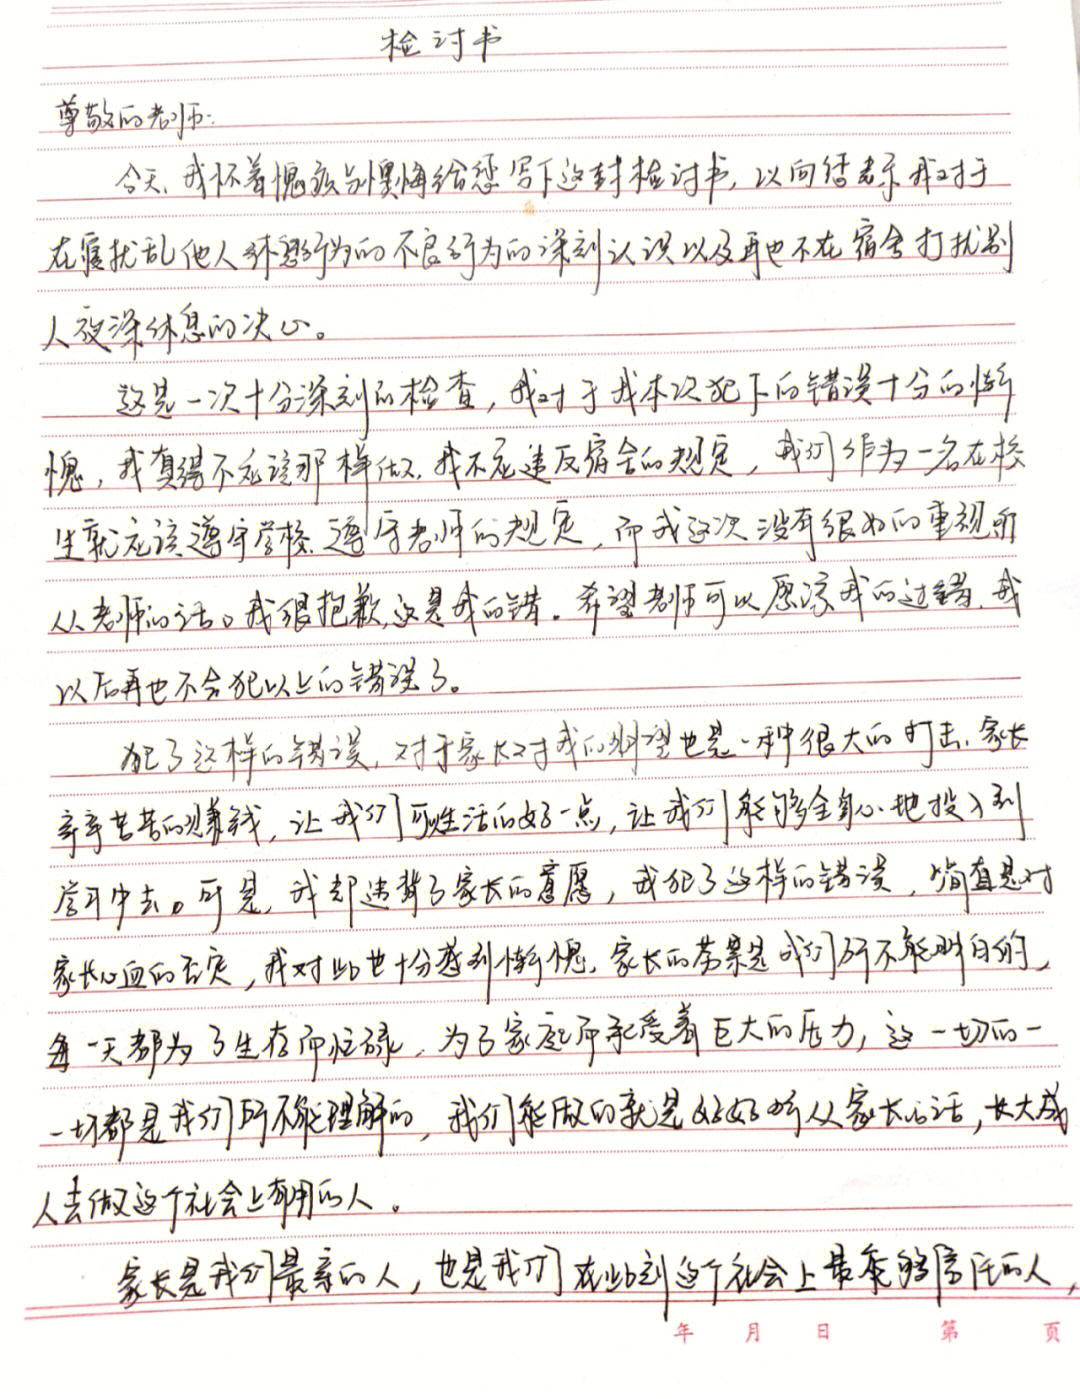 检讨书
尊敬的老师:
今天,我怀着愧疚与懊悔给您写下这封检讨书,以向您表示我对于
在寝扰乱他人休息行为的不良行为的深刻认识以及再也不在宿舍打扰别
人夜深休息的决心。
这是一次十分深刻的检查,我对于我本次犯下的错误十分的惭
愧,我真得不应该那样做,我不应违反宿舍的规定,我们作为一名在校
生就应该遵守学校、遵守老师的规定,而我这次没有很好的重视听
从老师的话。我很抱歉,这是我的错。希望老师可以原凉我的过错,我
以后再也不会犯以上的错误了。
犯了这样的错误,对于家长对我的期望也是一种很大的打击,家长
辛辛苦苦的赚钱,让我们可生活的好一点,让我们能够全身心地投入到
学习中去。可是,我却违背了家长的意愿,我犯了这样的错误,简直是对
家长心血的否定,我对此也十分感到惭愧,家长的劳累是我们所不能明白的,
每一天都为了生存而忙碌,为了家庭而承受着巨大的压力,这一切的一
一切都是我们所不能理解的,我们能做的就是好好听从家长的话,长大成
人去做这个社会上有用的人。
家长是我们最亲的人,也是我们在此刻这个社会上最能够信任的人,
年 月 日 第 页